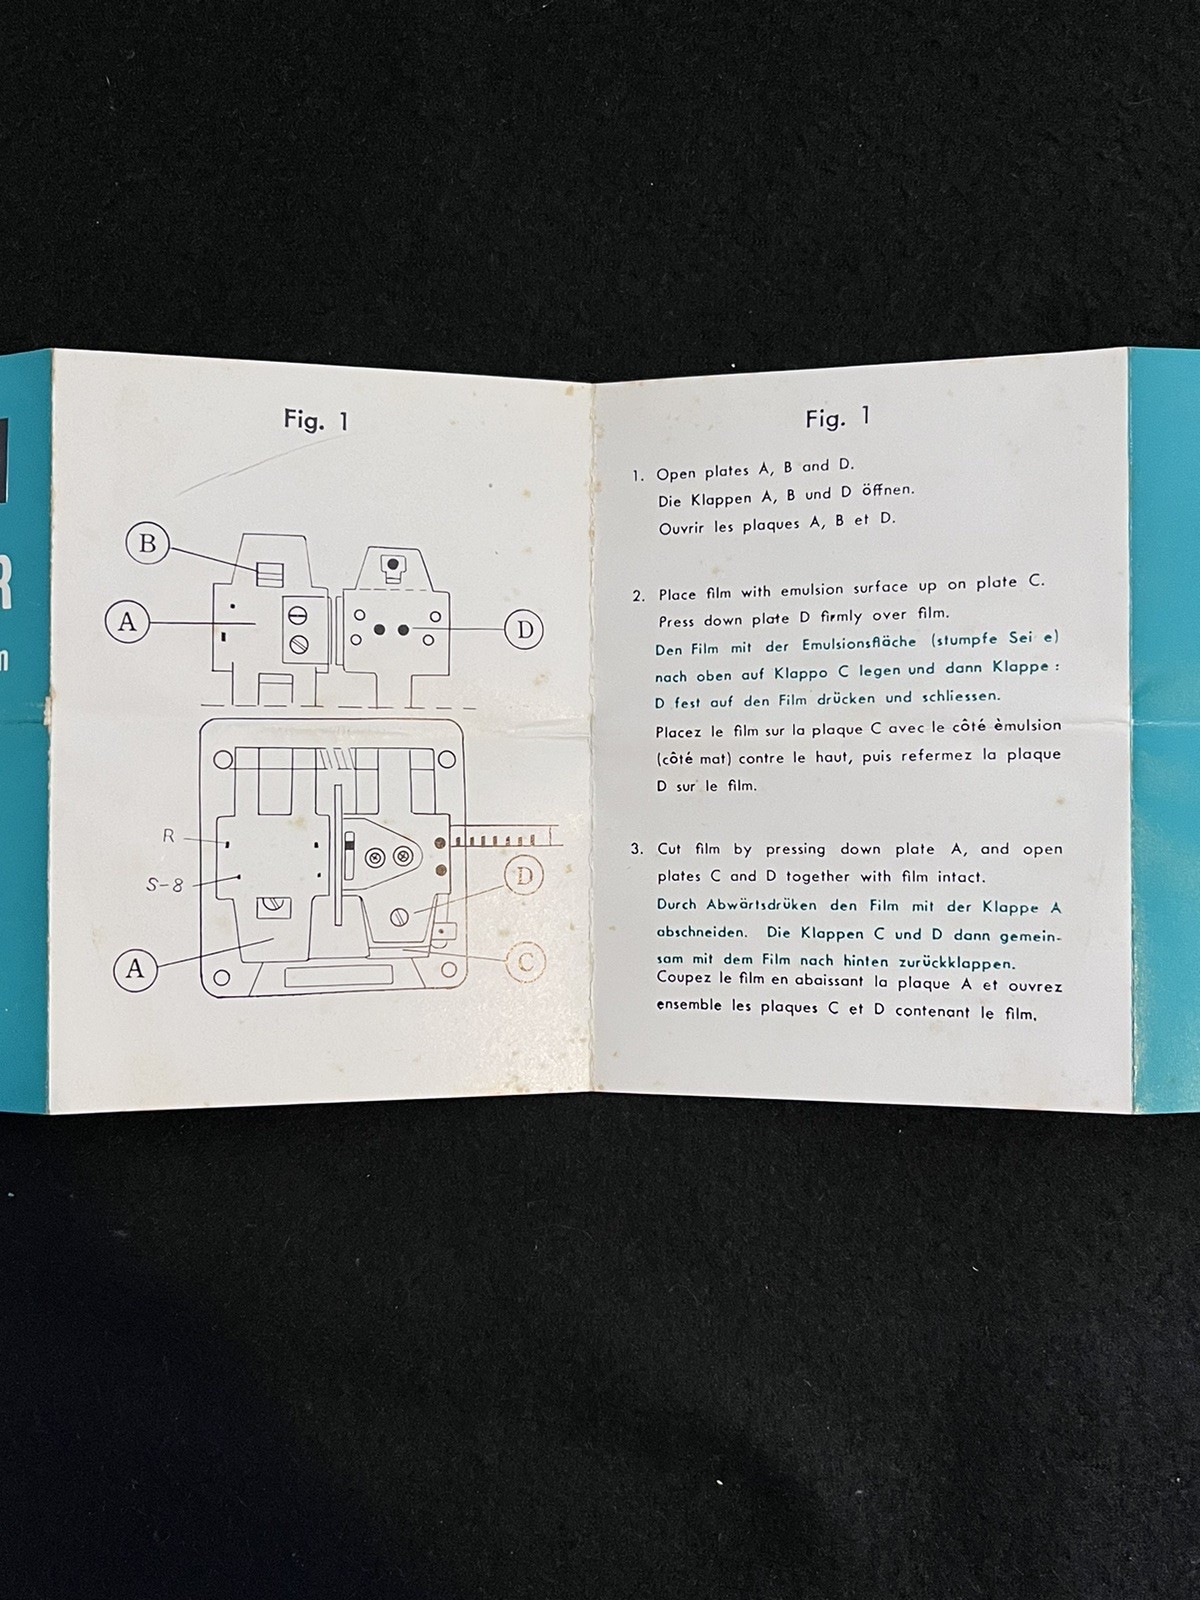 R
m
Fig. 1
B
A
D
R
S-8
D
A
C
Fig. 1
1. Open plates A, B and D.
Die Klappen A, B und D öffnen.
Ouvrir les plaques A, B et D.
2. Place film with emulsion surface up on plate C.
Press down plate D firmly over film.
Den Film mit der Emulsionsfläche (stumpfe Sei e)
nach oben auf Klappo C legen und dann Klappe :
D fest auf den Film drücken und schliessen.
Placez le film sur la plaque C avec le côté èmulsion
(côté mat) contre le haut, puis refermez la plaque
D sur le film.
3. Cut film by pressing down plate A, and open
plates C and D together with film intact.
Durch Abwärtsdrüken den Film mit der Klappe A
abschneiden. Die Klappen C und D dann gemein-
sam mit dem Film nach hinten zurückklappen.
Coupez le film en abaissant la plaque A et ouvrez
ensemble les plaques C et D contenant le film.